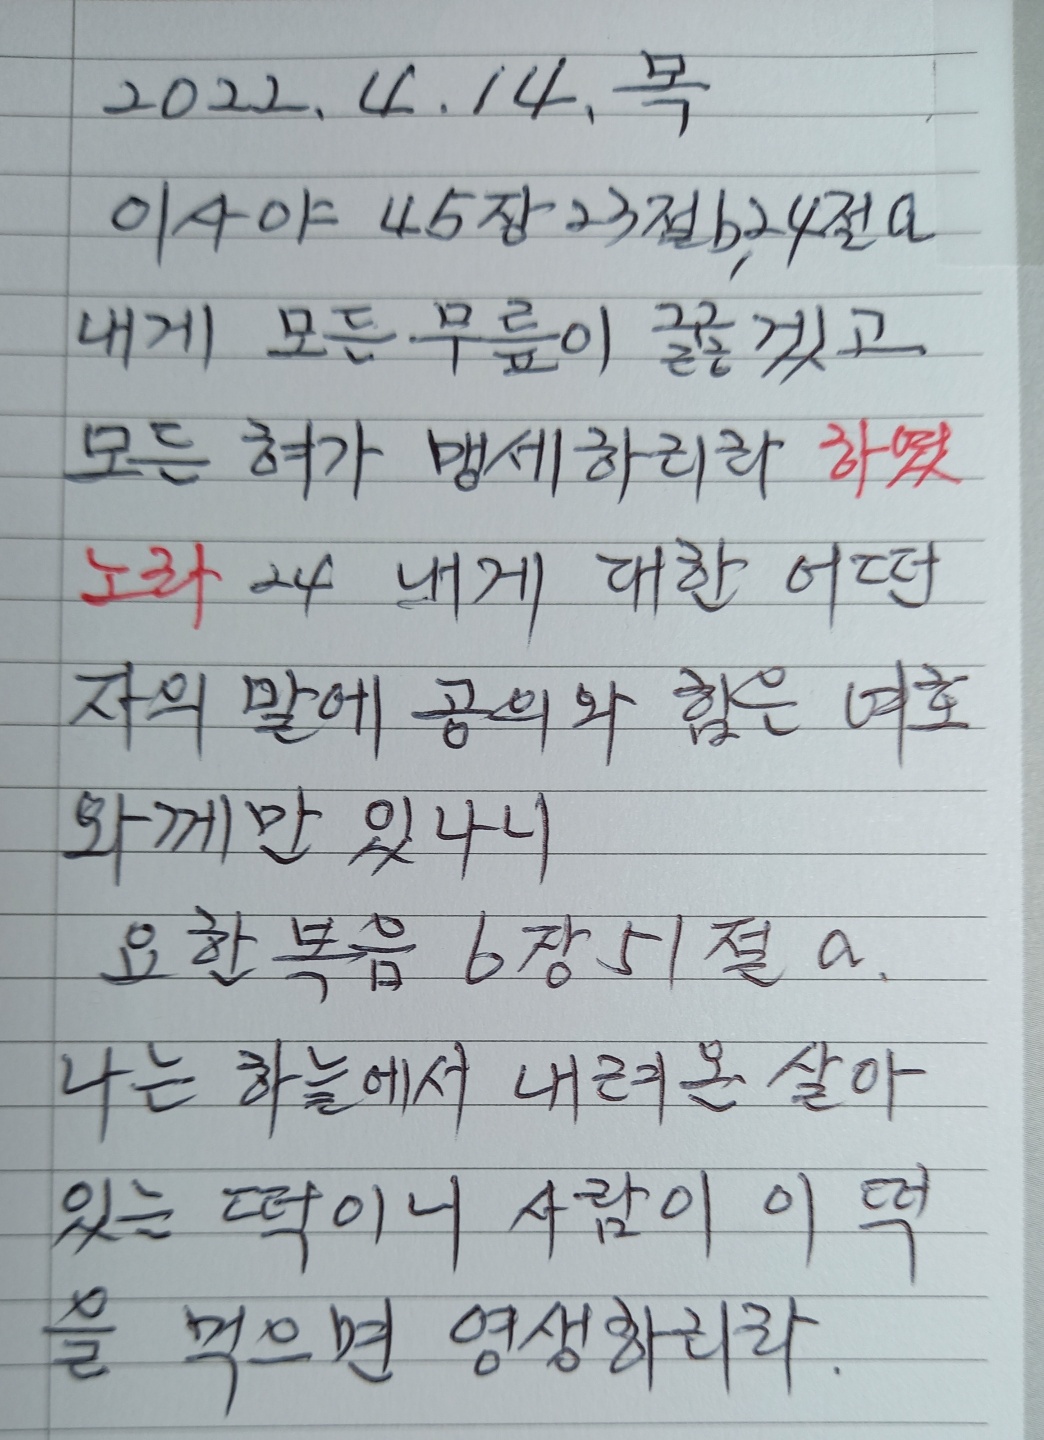 2022. 4. 14. 목
이사야 45장 23절b, 24절a
내게 모든 무릎이 꿇겠고
모든 혀가 맹세하리라 하였
노라 24 내게 대한 어떤
자의 말에 공의와 힘은 여호
와께만 있나니
요한복음 6장 51절 a.
나는 하늘에서 내려온 살아
있는 떡이니 사람이 이 떡
을 먹으면 영생하리라.